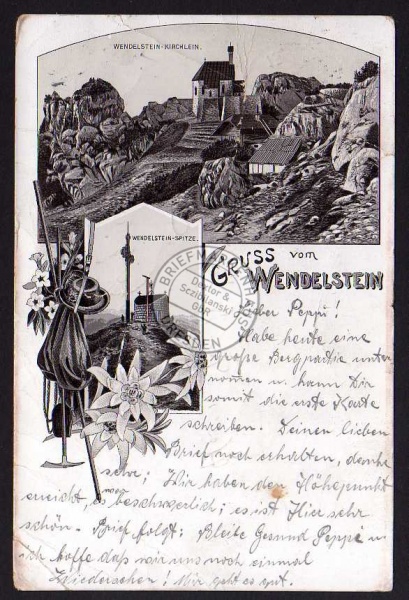 WENDELSTEIN-KIRCHLEIN.
WENDELSTEIN-SPITZE.
GRUSS vom
WENDELSTEIN
BRIEFMARKENHAUS
Dieter &
Sziblanski
GbR
DRESDEN
Lieber Peppi!
Habe heute eine
große Bergpartie unter
nommen u. kann Dir
somit die erste Karte
schreiben. Deinen lieben
Brief noch erhalten, danke
sehr; Wir haben den Höhepunkt
erreicht, beschwerlich; es ist Hier sehr
schön. Brief folgt; Bleibe Gesund Peppi u
ich hoffe daß wir uns noch einmal
Wiedersehen! Mir geht es gut.